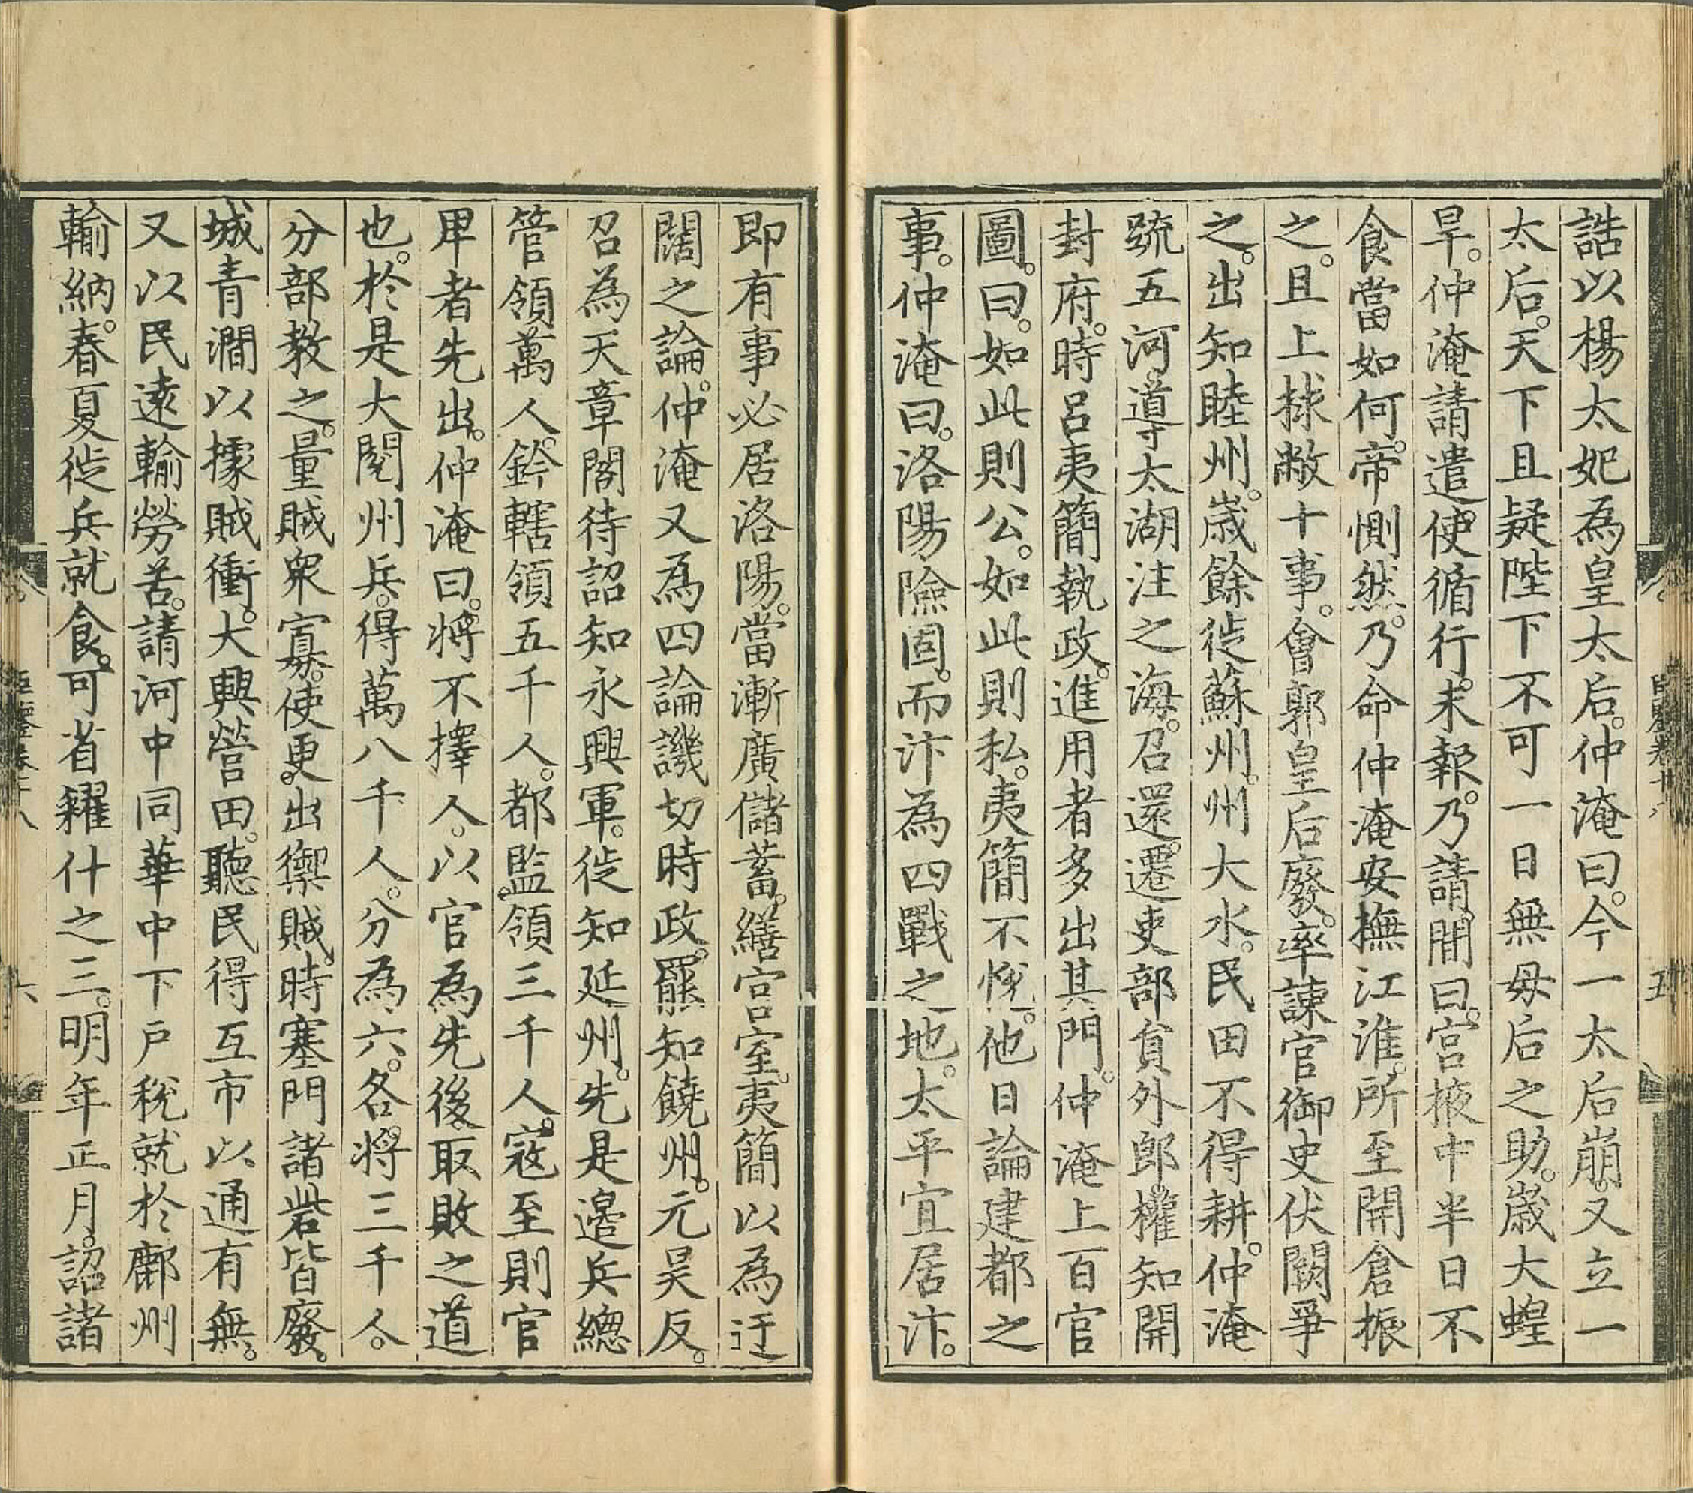 誥以楊太妃為皇太后。仲淹曰。今一太后崩。又立一
太后。天下且疑陛下不可一日無母后之助。歲大蝗
旱。仲淹請遣使循行。未報。乃請間曰。宮掖中半日不
食當如何。帝惻然。乃命仲淹安撫江淮。所至開倉振
之。且上捄敝十事。會郭皇后廢。率諫官御史伏闕爭
之。出知睦州。歲餘徙蘇州。州大水。民田不得耕。仲淹
䟽五河導太湖注之海。召還。遷吏部員外郎。權知開
封府。時呂夷簡執政。進用者多出其門。仲淹上百官
圖。曰。如此則公。如此則私。夷簡不悅。他日論建都之
事。仲淹曰。洛陽險固。而汴為四戰之地。太平宜居汴。
即有事必居洛陽。當漸廣儲蓄。繕宮室。夷簡以為迂
闊之論。仲淹又為四論譏切時政。罷知饒州。元昊反。
召為天章閣待詔知永興軍。徙知延州。先是邊兵總
管領萬人。鈐轄領五千人。都監領三千人。寇至則官
卑者先出。仲淹曰。將不擇人。以官為先後。取敗之道
也。於是大閱州兵。得萬八千人。分為六。各將三千人。
分部教之。量賊眾寡。使更出禦賊。時塞門諸砦皆廢。
城青澗以據賊衝。大興營田。聽民得互市以通有無。
又以民遠輸勞苦。請河中同華中下戶稅就於鄜州
輸納。春夏徙兵就食。可省糴什之三。明年正月。詔諸
五
六